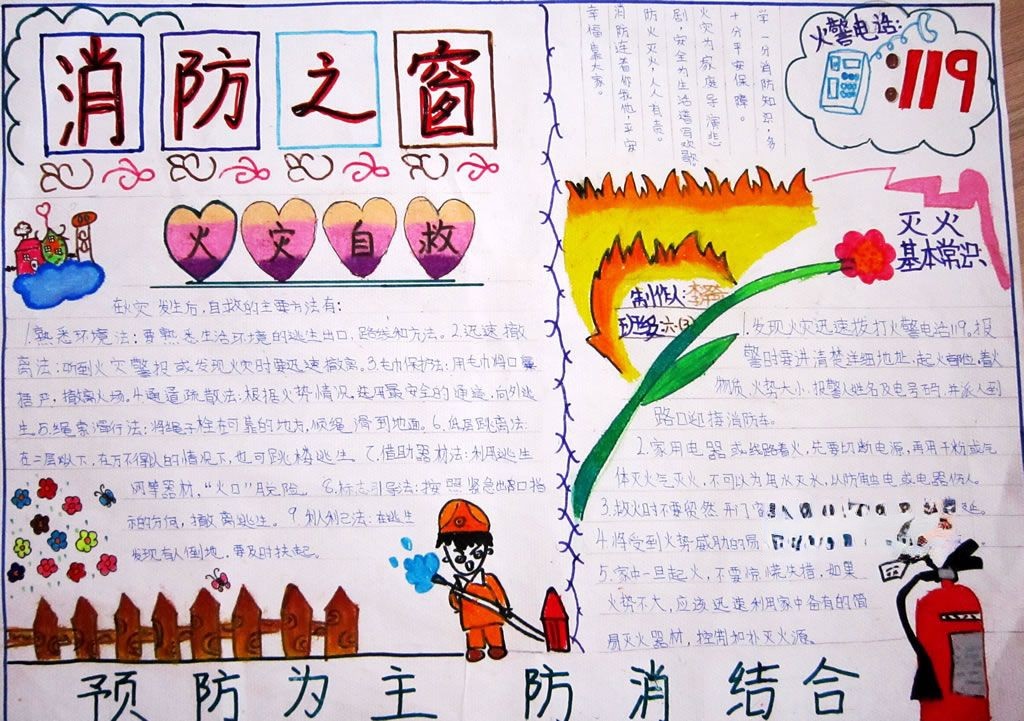 消防之窗
火灾自救
在火灾发生后，自救的主要方法有：
1.熟悉环境法：要熟悉生活环境的逃生出口，路线和方法。2.迅速撤
离法：听到火灾警报或发现火灾时要迅速撤离。3.毛巾保护法：用毛巾将口鼻
捂严，撤离火场。4.通道疏散法：根据火势情况，选用最安全的通道，向外逃
生。5.绳索滑行法：将绳子栓在可靠的地方，顺绳滑到地面。6.低层跳离法：
在二层以下，在万不得以的情况下，也可跳楼逃生。7.借助器材法：利用逃生
网等器材，“火口”脱险。8.标志引导法：按照紧急出口指
示的方向，撤离逃生。9.利人利己法：在逃生
发现有人倒地，要及时扶起。
学一分消防知识，多
十分平安保障。
火灾为家庭导演悲
剧，安全为生活谱写欢歌。
防火灭火，人人有责。
消防连着你我他，平安
幸福靠大家。
火警电话：
119
灭火
基本常识
制作人：李
班级：六(3)
1.发现火灾迅速拨打火警电话119。报
警时要讲清楚详细地址，起火部位，着火
物质，火势大小，报警人姓名及电号码，并派人到
路口迎接消防车。
2.家用电器或线路着火，先要切断电源，再用干粉或气
体灭火气灭火，不可以为用水灭火，以防触电或电器伤人。
3.救火时不要贸然开门窗
4.将受到火势威胁的易
5.家中一旦起火，不要惊慌失措，如果
火势不大，应该迅速利用家中备有的简
易灭火器材，控制和扑灭火源。
预防为主 防消结合